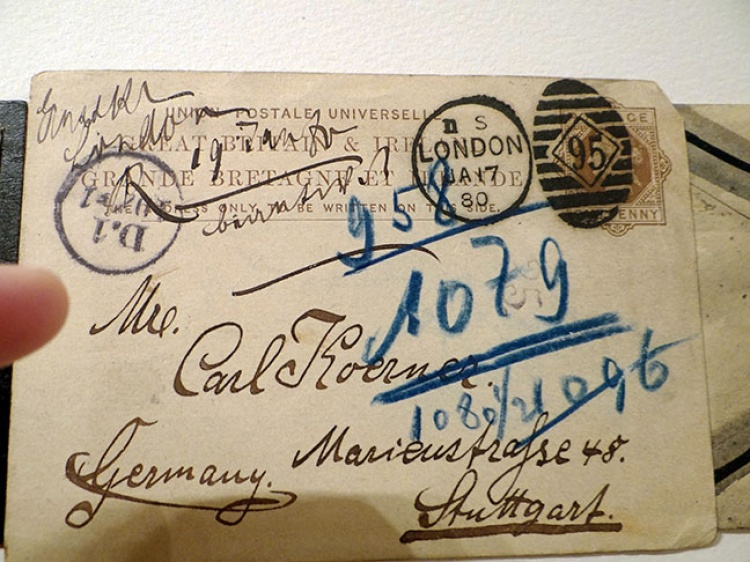 London
19 Jan
UNION POSTALE UNIVERSELLE
GREAT BRITAIN & IREL
GRANDE BRETAGNE ET IRLANDE
THE ADDRESS ONLY TO BE WRITTEN ON THIS SIDE.
S
LONDON
JA 17
80
95
PENNY
D.1
958
1079
1096
Mr.
Carl Koerner.
Marienstraße 48.
Germany.
Stuttgart.